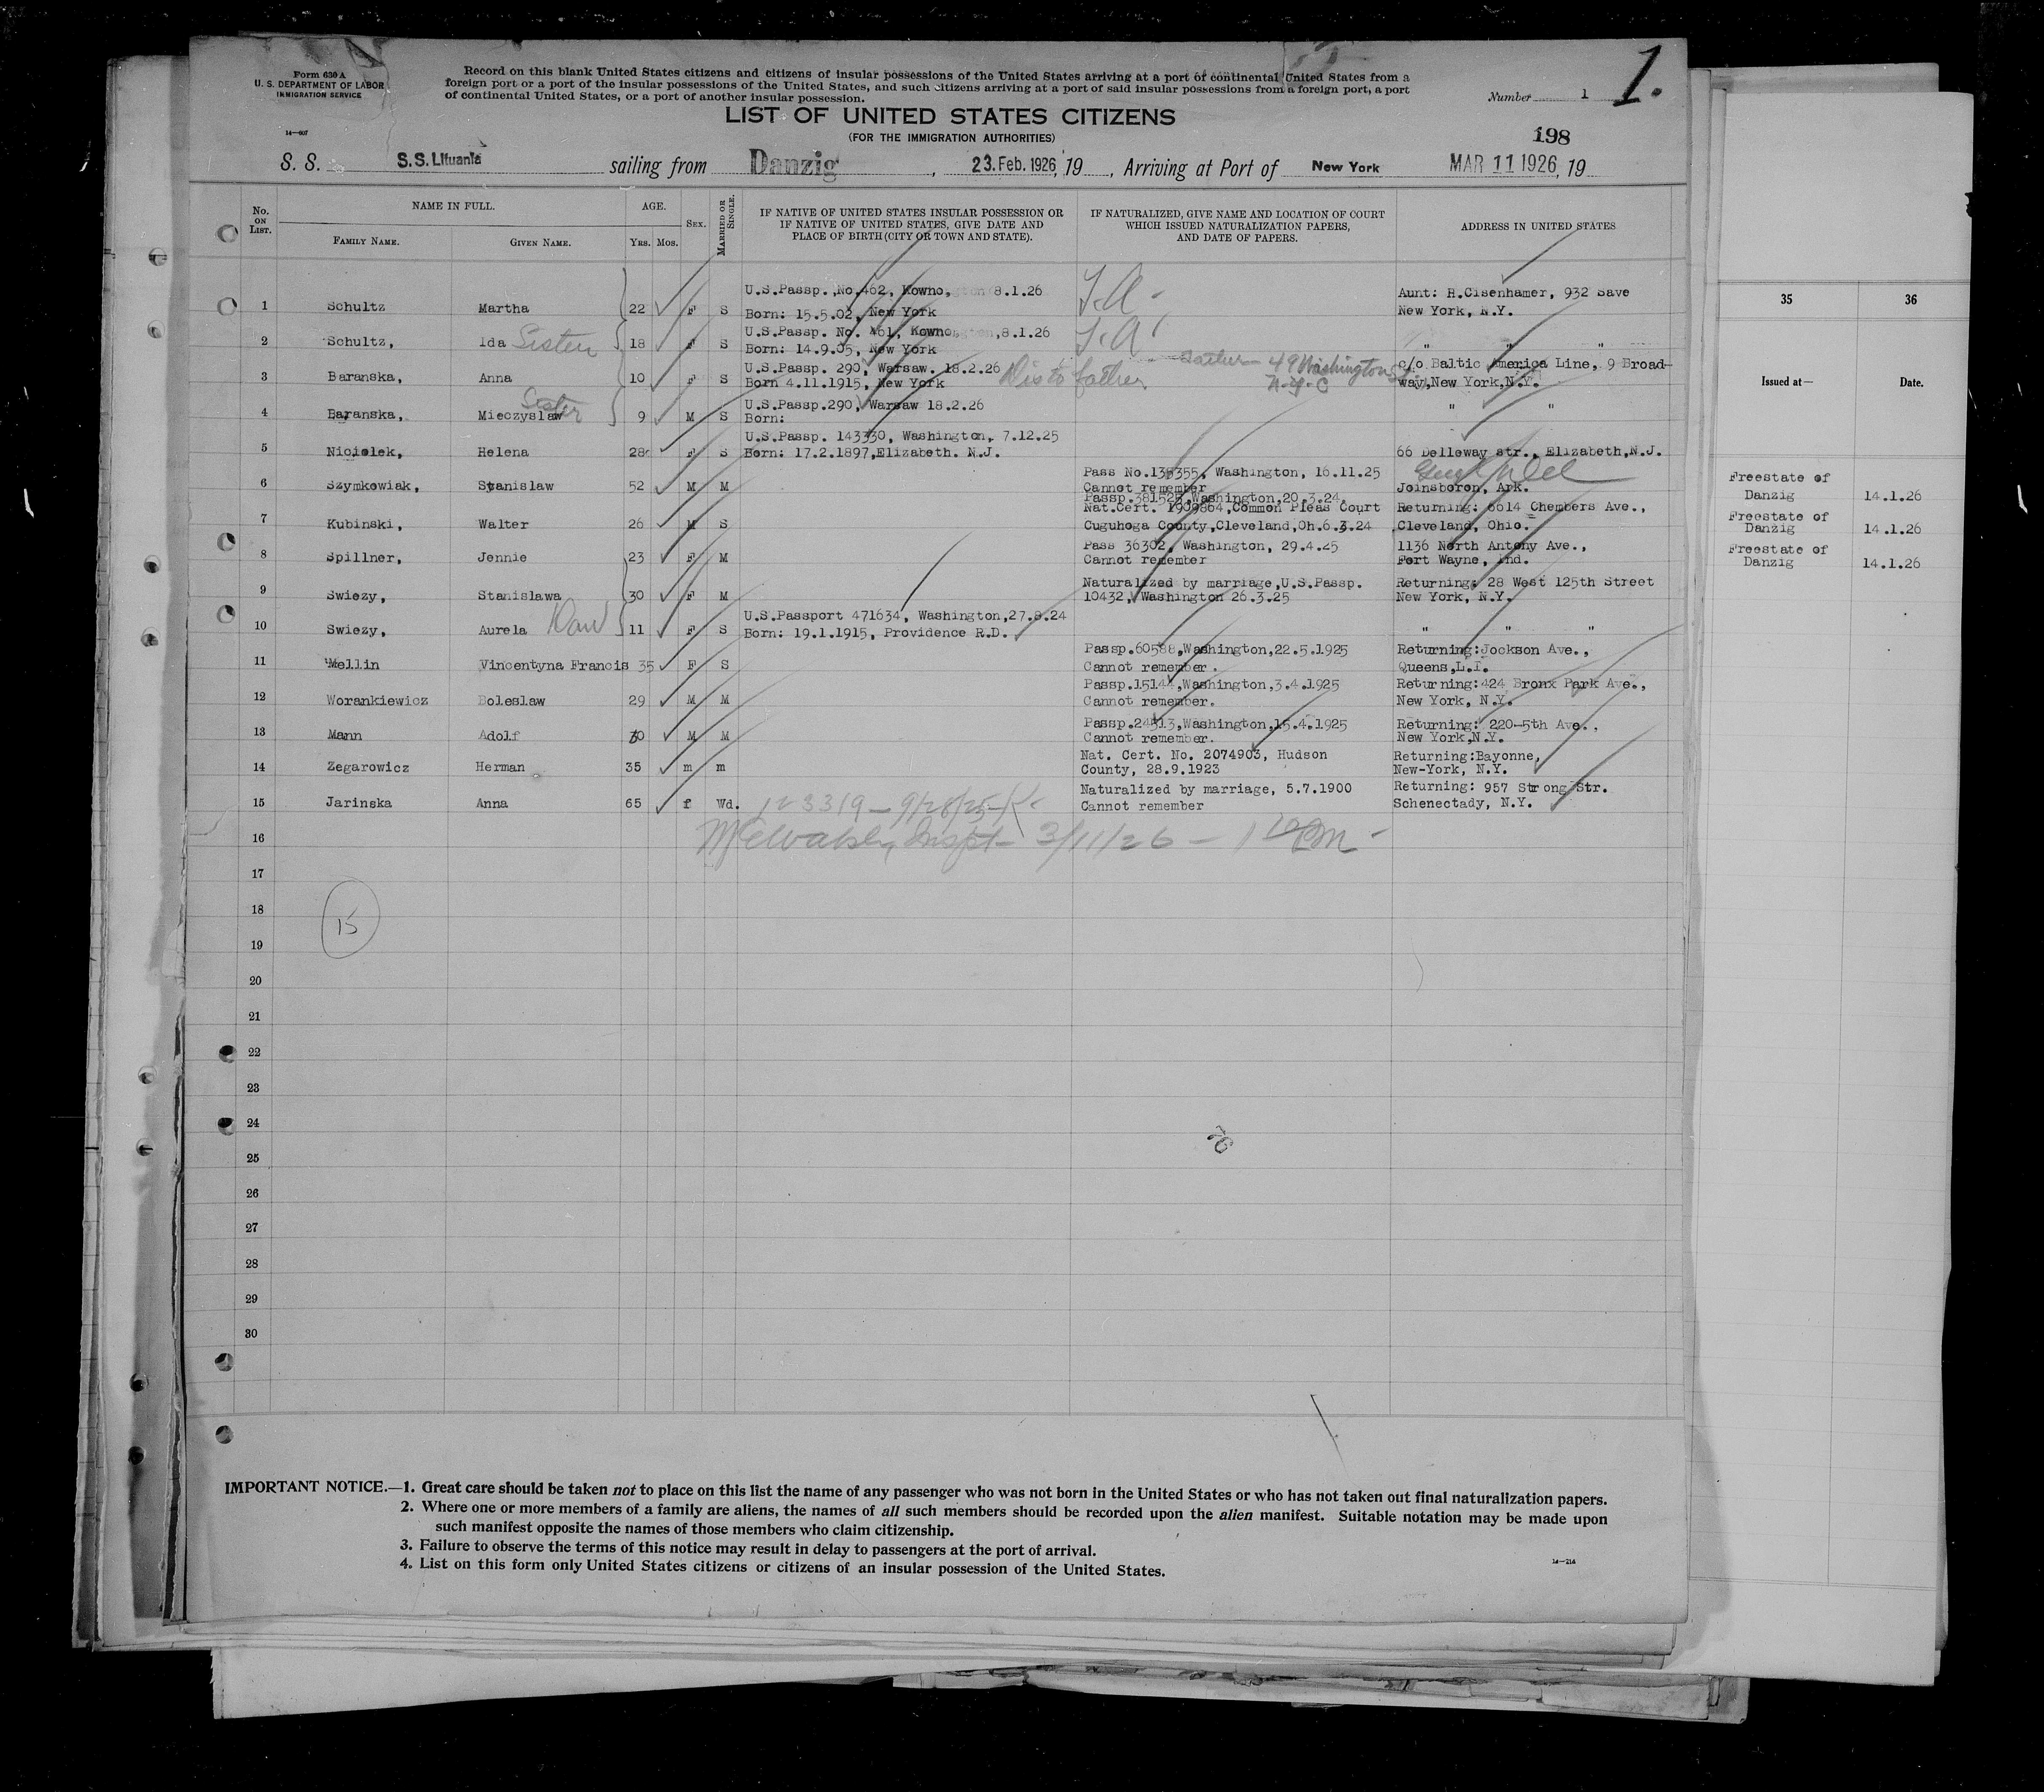 Form 630 A
U. S. DEPARTMENT OF LABOR
IMMIGRATION SERVICE
14—607
Record on this blank United States citizens and citizens of insular possessions of the United States arriving at a port of continental United States from a
foreign port or a port of the insular possessions of the United States, and such citizens arriving at a port of said insular possessions from a foreign port, a port
of continental United States, or a port of another insular possession.
Number 1
1.
LIST OF UNITED STATES CITIZENS
(FOR THE IMMIGRATION AUTHORITIES)
198
S. S. S.S.Lituania sailing from Danzig, 23.Feb.1926, 19, Arriving at Port of New York MAR 11 1926, 19
No. ON LIST.
NAME IN FULL.
FAMILY NAME.
GIVEN NAME.
AGE.
YRS. MOS.
SEX.
MARRIED OR SINGLE.
IF NATIVE OF UNITED STATES INSULAR POSSESSION OR
IF NATIVE OF UNITED STATES, GIVE DATE AND
PLACE OF BIRTH (CITY OR TOWN AND STATE).
IF NATURALIZED, GIVE NAME AND LOCATION OF COURT
WHICH ISSUED NATURALIZATION PAPERS,
AND DATE OF PAPERS.
ADDRESS IN UNITED STATES
35 36
Issued at— Date.
U.S.Passp.,No.462, Kowno, 8.1.26 Aunt: H.Cisenhamer, 932 Save
1 Schultz Martha 22 F S Born: 15.5.02, New York New York, N.Y.
U.S.Passp. No. 461, Kowno, 8.1.26
2 Schultz, Ida Sister 18 F S Born: 14.9.05, New York " " "
U.S.Passp. 290, Warsaw. 18.2.26 father — 49 Washington St c/o Baltic America Line, 9 Broad-
3 Baranska, Anna 10 F S Born 4.11.1915, New York Dis to father N.Y.C way,New York,N.Y.
Sister U.S.Passp.290, Warsaw 18.2.26
4 Baranska, Mieczyslaw 9 M S Born: " "
U.S.Passp. 143330, Washington, 7.12.25
5 Niciolek, Helena 28 F S Born: 17.2.1897,Elizabeth. N.J. 66 Delleway str., Elizabeth,N.J.
Pass No.135355, Washington, 16.11.25
6 Szymkowiak, Stanislaw 52 M M Cannot remember Joinsboron, Ark.
Freestate of
Danzig 14.1.26
Passp.381525,Washington,20.3.24.
Nat.Cert. 1909864,Common Pleas Court Returning: 6614 Chembers Ave.,
7 Kubinski, Walter 26 M S Cuguhoga County,Cleveland,Oh.6.3.24 Cleveland, Ohio.
Freestate of
Danzig 14.1.26
Pass 36302, Washington, 29.4.25 1136 North Antony Ave.,
8 Spillner, Jennie 23 F M Cannot remember Fort Wayne, Ind.
Freestate of
Danzig 14.1.26
Naturalized by marriage,U.S.Passp. Returning: 28 West 125th Street
9 Swiezy, Stanislawa 30 F M 10432, Washington 26.3.25 New York, N.Y.
U.S.Passport 471634, Washington,27.8.24
10 Swiezy, Aurela Dau 11 F S Born: 19.1.1915, Providence R.D. " " "
Passp.60588,Washington,22.5.1925 Returning:Jockson Ave.,
11 Mellin Vincentyna Francis 35 F S Cannot remember. Queens,L.I.
Passp.15144,Washington,3.4.1925 Returning:424 Bronx Park Ave.,
12 Worankiewicz Boleslaw 29 M M Cannot remember. New York, N.Y.
Passp.24513,Washington,15.4.1925 Returning: 220-5th Ave.,
13 Mann Adolf 30 M M Cannot remember. New York,N.Y.
Nat. Cert. No. 2074903, Hudson Returning:Bayonne,
14 Zegarowicz Herman 35 m m County, 28.9.1923 New-York, N.Y.
Naturalized by marriage, 5.7.1900 Returning: 957 Strong Str.
15 Jarinska Anna 65 f Wd. 123319 — 9/28/25 Cannot remember Schenectady, N.Y.
16 Inspt — 3/11/26 —
17
18
15
19
20
21
22
23
24
25
26
27
28
29
30
IMPORTANT NOTICE.—1. Great care should be taken not to place on this list the name of any passenger who was not born in the United States or who has not taken out final naturalization papers.
2. Where one or more members of a family are aliens, the names of all such members should be recorded upon the alien manifest. Suitable notation may be made upon
such manifest opposite the names of those members who claim citizenship.
3. Failure to observe the terms of this notice may result in delay to passengers at the port of arrival.
4. List on this form only United States citizens or citizens of an insular possession of the United States.
14—214